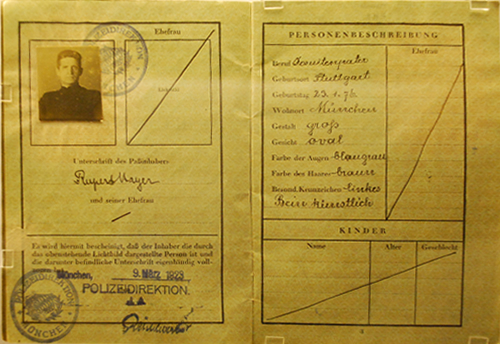 Ehefrau
POLIZEIDIREKTION
MÜNCHEN
Unterschrift des Paßinhabers
Rupert Mayer
und seiner Ehefrau
Es wird hiermit bescheinigt, daß der Inhaber die durch
das obenstehende Lichtbild dargestellte Person ist und
die darunter befindliche Unterschrift eigenhändig voll-
München, 9. März 1923
POLIZEIDIREKTION.
POLIZEIDIREKTION
MÜNCHEN
PERSONENBESCHREIBUNG
Ehefrau
Beruf Jesuitenpater
Geburtsort Stuttgart
Geburtstag 23. 1. 76
Wohnort München
Gestalt groß
Gesicht oval
Farbe der Augen blaugrau
Farbe des Haares braun
Besond. Kennzeichen linkes
Bein künstlich
KINDER
Name Alter Geschlecht